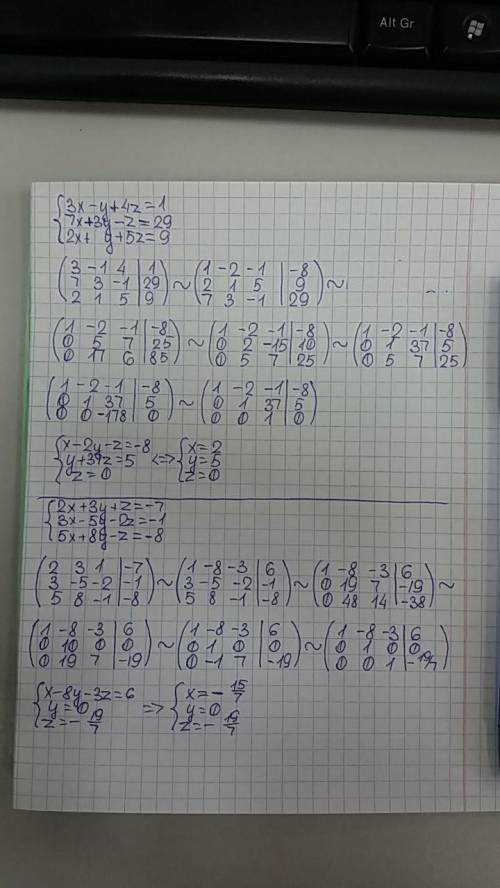 Alt Gr
{3x-y+4z=1
7x+3y-z=29
2x+ y+5z=9
(3 -1 4 | 1
7 3 -1 | 29
2 1 5 | 9) ~ (1 -2 -1 | -8
2 1 5 | 9
7 3 -1 | 29) ~
(1 -2 -1 | -8
0 5 7 | 25
0 17 6 | 85) ~ (1 -2 -1 | -8
0 2 -15 | 10
0 5 7 | 25) ~ (1 -2 -1 | -8
0 1 37 | 5
0 5 7 | 25)
(1 -2 -1 | -8
0 1 37 | 5
0 0 -178 | 0) ~ (1 -2 -1 | -8
0 1 37 | 5
0 0 1 | 0)
{x-2y-z=-8
y+37z=5
z=0 <=> {x=2
y=5
z=0
{2x+3y+z=-7
3x-5y-2z=-1
5x+8y-z=-8
(2 3 1 | -7
3 -5 -2 | -1
5 8 -1 | -8) ~ (1 -8 -3 | 6
3 -5 -2 | -1
5 8 -1 | -8) ~ (1 -8 -3 | 6
0 19 7 | -19
0 48 14 | -38) ~
(1 -8 -3 | 6
0 10 0 | 0
0 19 7 | -19) ~ (1 -8 -3 | 6
0 1 0 | 0
0 -1 7 | -19) ~ (1 -8 -3 | 6
0 1 0 | 0
0 0 1 | -19/7)
{x-8y-3z=6
y=0
z=-19/7 => {x=-15/7
y=0
z=-19/7